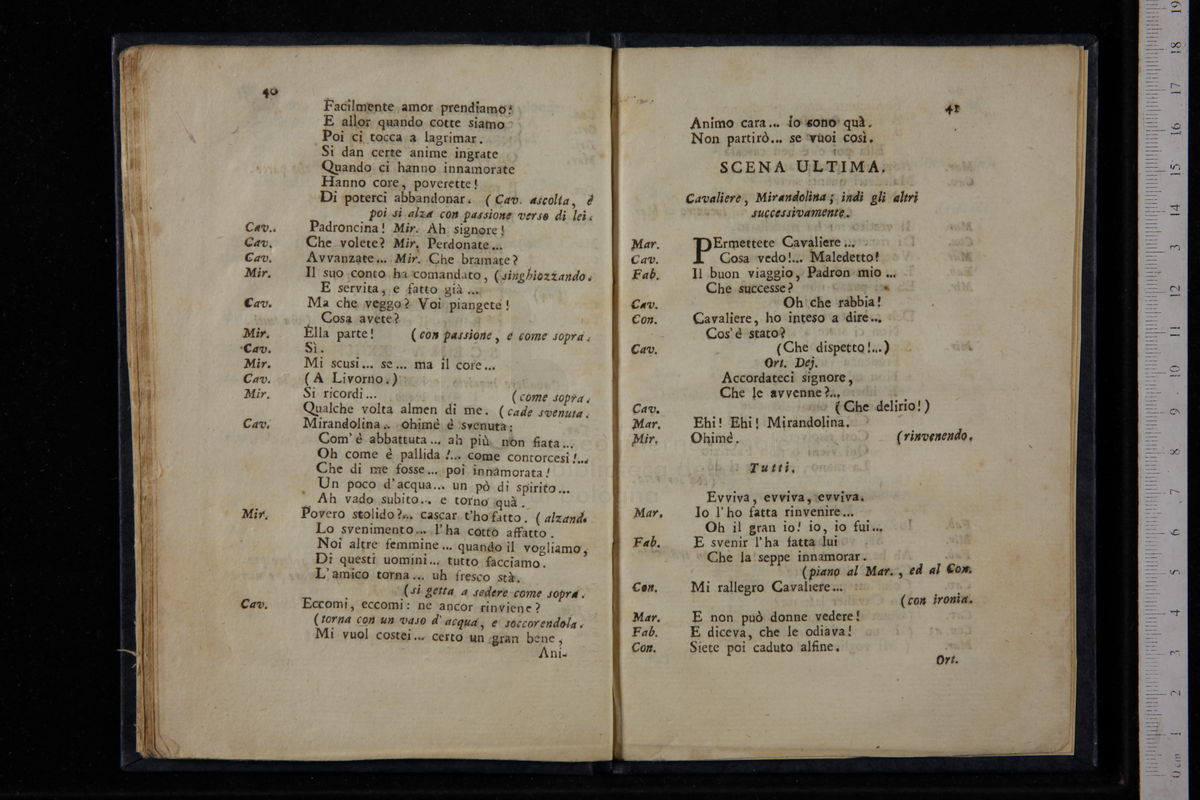 40
Facilmente amor prendiamo:
E allor quando cotte siamo
Poi ci tocca a lagrimar.
Si dan certe anime ingrate
Quando ci hanno innamorate
Hanno core, poverette!
Di poterci abbandonar. (Cav. ascolta, è
poi si alza con passione verso di lei.
Cav. Padroncina! Mir. Ah signore!
Cav. Che volete? Mir. Perdonate...
Cav. Avvanzate... Mir. Che bramate?
Mir. Il suo conto ha comandato, (singhiozzando.
E servita, e fatto già ...
Cav. Ma che veggo? Voi piangete!
Cosa avete?
Mir. Ella parte! (con passione, e come sopra.
Cav. Sì.
Mir. Mi scusi... se... ma il core...
Cav. (A Livorno.)
Mir. Si ricordi... (come sopra.
Qualche volta almen di me. (cade svenuta.
Cav. Mirandolina.. ohimè è svenuta:
Com'è abbattuta... ah più non fiata...
Oh come è pallida!... come contorcesi!...
Che di me fosse... poi innamorata!
Un poco d'acqua... un pò di spirito...
Ah vado subito... e torno quà.
Mir. Povero stolido?... cascar t'ho fatto. (alzand.
Lo svenimento... l'ha cotto affatto.
Noi altre femmine... quando il vogliamo,
Di questi uomini... tutto facciamo.
L'amico torna... uh fresco stà.
(si getta a sedere come sopra.
Cav. Eccomi, eccomi: ne ancor rinviene?
(torna con un vaso d'acqua, e soccorendola.
Mi vuol costei... certo un gran bene,
Ani-
41
Animo cara... io sono quà.
Non partirò... se vuoi così.
SCENA ULTIMA.
Cavaliere, Mirandolina; indi gli altri
successivamente.
Mar. PErmettete Cavaliere...
Cav. Cosa vedo!... Maledetto!
Fab. Il buon viaggio, Padron mio ...
Che successe?
Cav. Oh che rabbia!
Con. Cavaliere, ho inteso a dire...
Cos'è stato?
Cav. (Che dispetto!...)
Ort. Dej.
Accordateci signore,
Che le avvenne?...
Cav. (Che delirio!)
Mar. Ehi! Ehi! Mirandolina.
Mir. Ohimè. (rinvenendo.
Tutti.
Evviva, evviva, evviva.
Mar. Io l'ho fatta rinvenire...
Oh il gran io! io, io fui...
Fab. E svenir l'ha fatta lui
Che la seppe innamorar.
(piano al Mar., ed al Con.
Con. Mi rallegro Cavaliere...
(con ironia.
Mar. E non può donne vedere!
Fab. E diceva, che le odiava!
Con. Siete poi caduto alfine.
Ort.
0 cm 1 2 3 4 5 6 7 8 9 10 11 12 13 14 15 16 17 18 19